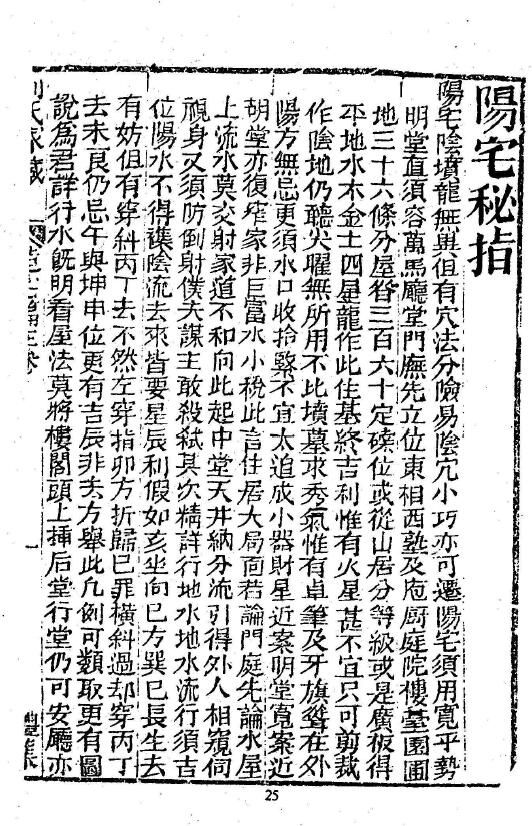 陽宅秘指
陽宅陰墳龍無異但有穴法分險易陰穴小巧亦可遷陽宅須用寬平勢
明堂直須容萬馬廳堂門廡先立位東相西塾及庖廚庭院樓臺園圃
地三十六條分屋脊三百六十定磉位或從山居分等級或是廣板得
平地水木金土四星龍作此住基終吉利惟有火星甚不宜只可剪裁
作陰地仍聽尖曜無所用不比墳墓求秀氣惟有卓筆及牙旗聳在外
陽方無忌更須水口收拾緊不宜太迫成小器財星近案明堂寬案近
胡堂亦復窄家非巨富水小稅此言住居大局面若論門庭先論水屋
上流水莫交射家道不和向此起中堂天井納分流引得外人相窺伺
視身又須防倒射僕夫謀主敢殺弒其次精詳行地水地水流行須吉
位陽水不得襍陰流去來皆要星辰利假如亥坐向巳方巽巳長生去
有妨但有穿斜丙丁去不然左穿指卯方折歸巳罪橫斜過却穿丙丁
去未艮仍忌午與坤申位更有吉辰非去方舉此凡例可類取更有圖
說為君詳行水旣明看屋法莫將樓閣頭上揷后堂行堂仍可安廳亦
氏家藏
一
25